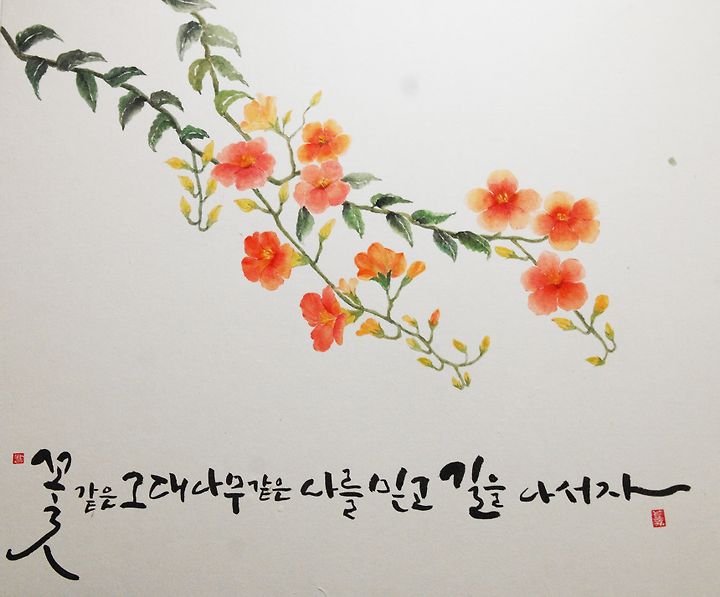 꽃같은 그대 나무같은 나를 믿고 길을 나서자